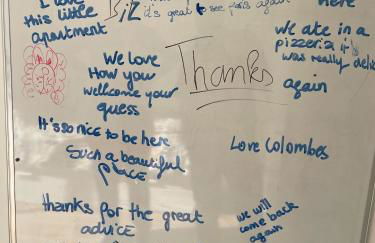 I love
this little
apartment
BiZ
it's great to see Paris again
Here
we ate in a
pizzeria it
was really
again
We love
How you
wellcome your
guess
Thanks
It's so nice to be here
Such a beautiful
PLACE
Love Colombes
thanks for the great
advice
we will
come back
again